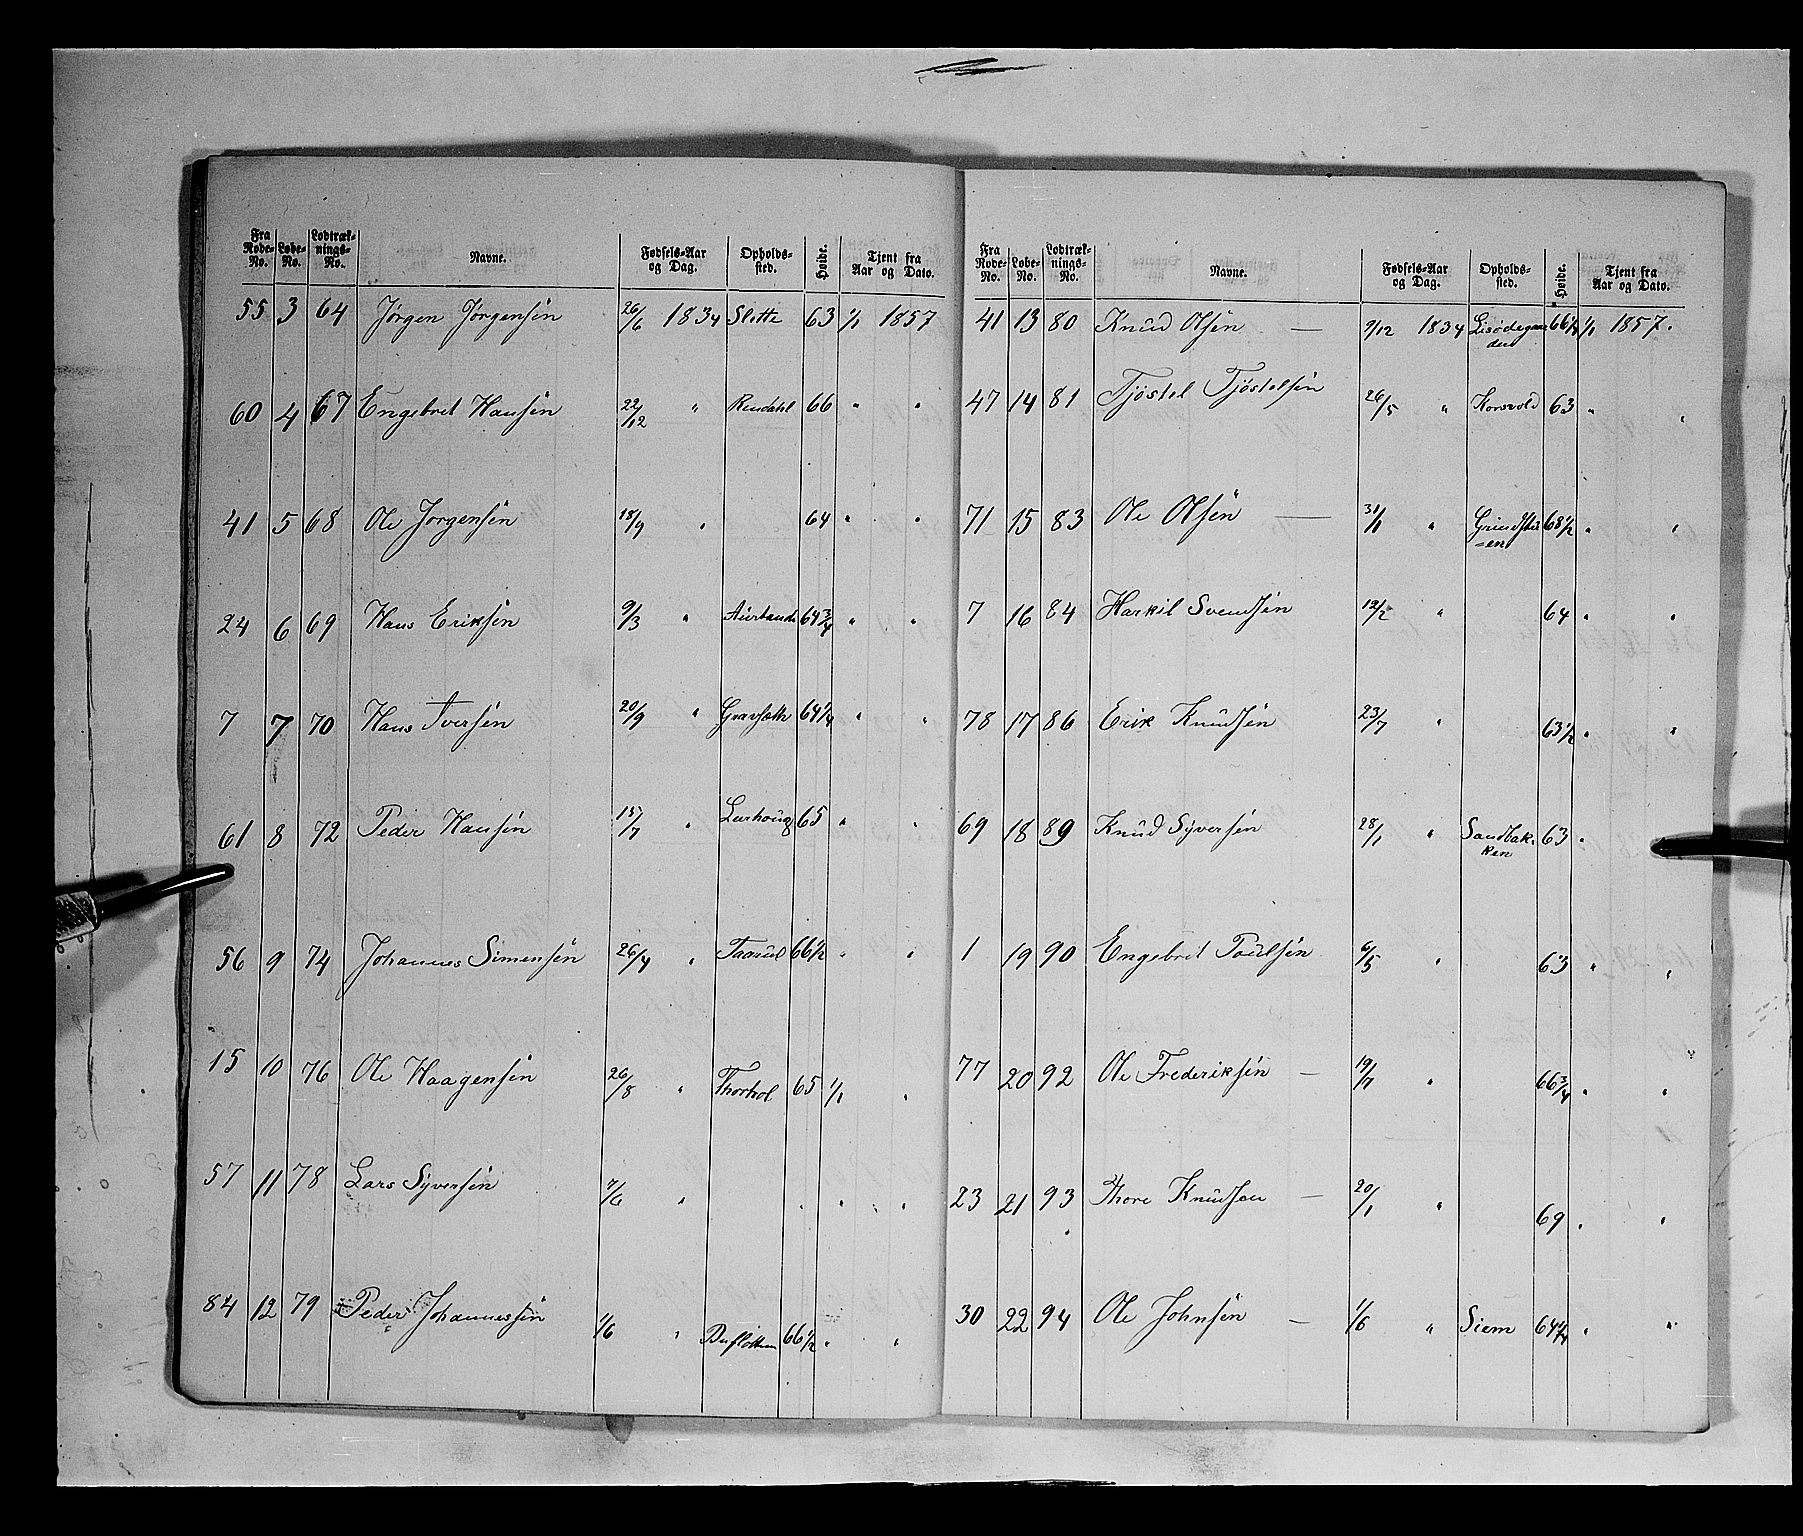 Fra Rode-No. Løbe-No. Lodtræk-nings-No. Navne. Fødsels-Aar og Dag. Opholds-sted. Høide. Tjent fra Aar og Dato.
55 3 64 Jørgen Jørgensen 26/6 1834 Slette 63 1/1 1857
60 4 67 Engebret Hansen 22/12 " Rendahl 66 " "
41 5 68 Ole Jørgensen 18/9 " 64 " "
24 6 69 Hans Eriksen 9/3 " 64 3/4 " "
7 7 70 Hans Iversen 20/9 " Gravsæth 64 1/4 " "
61 8 72 Peder Hansen 15/7 " Lurhoug 65 " "
56 9 74 Johannes Simensen 26/4 " Taarud 66 1/2 " "
15 10 76 Ole Haagensen 26/8 " Thorhol 65 1/1 "
57 11 78 Lars Syversen 7/6 " " " "
84 12 79 Peder Johannessen 1/6 " 66 1/2 " "
Fra Rode-No. Løbe-No. Lodtræk-nings-No. Navne. Fødsels-Aar og Dag. Opholds-sted. Høide. Tjent fra Aar og Dato.
41 13 80 Knud Olsen — 9/12 1834 66 1/4 1/1 1857.
47 14 81 Tjøstel Tjøstelsen 26/5 " Korsvold 63 " "
71 15 83 Ole Olsen — 31/1 " 68 1/2 " "
7 16 84 Harkil Svendsen 12/2 " 64 " "
78 17 86 Erik Knudsen 23/7 " 63 1/2 " "
69 18 89 Knud Syversen 28/1 " Sandbak-
ken 63 "
1 19 90 Engebret Poulsen 6/5 " 63 " "
77 20 92 Ole Frederiksen — 19/7 " 66 3/4 " "
23 21 93 Thore Knudsen — 20/1 " 69 " "
30 22 94 Ole Johnsen — 1/6 " Siem 64 1/4 " "